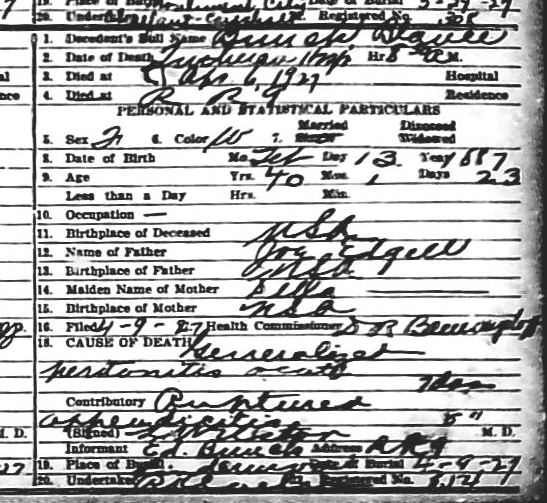 20. Undertaker Registered No.
1. Decedent's Full Name Bunch,
2. Date of Death Lutheran Hosp Hr 8 30 A M.
3. Died at Apr 6, 1927 Hospital
4. Died at R R 9 Residence
PERSONAL AND STATISTICAL PARTICULARS
5. Sex F 6. Color W 7. Married Single Divorced Widowed
8. Date of Birth Mo. Feb Day 13 Year 1887
9. Age Yrs. 40 Mos. 1 Days 23
Less than a Day Hrs. Min.
10. Occupation —
11. Birthplace of Deceased USA
12. Name of Father Joe Edgell
13. Birthplace of Father USA
14. Maiden Name of Mother Ella —
15. Birthplace of Mother USA
16. Filed 4-9-27 Health Commissioner
18. CAUSE OF DEATH Generalized
peritonitis acute
7 das
Contributory Ruptured
appendicitis 5 "
(Signed) M. D.
Informant Ed. Bunch Address R R 9
19. Place of Burial Date of Burial 4-9-27
20. Undertaker Registered No.